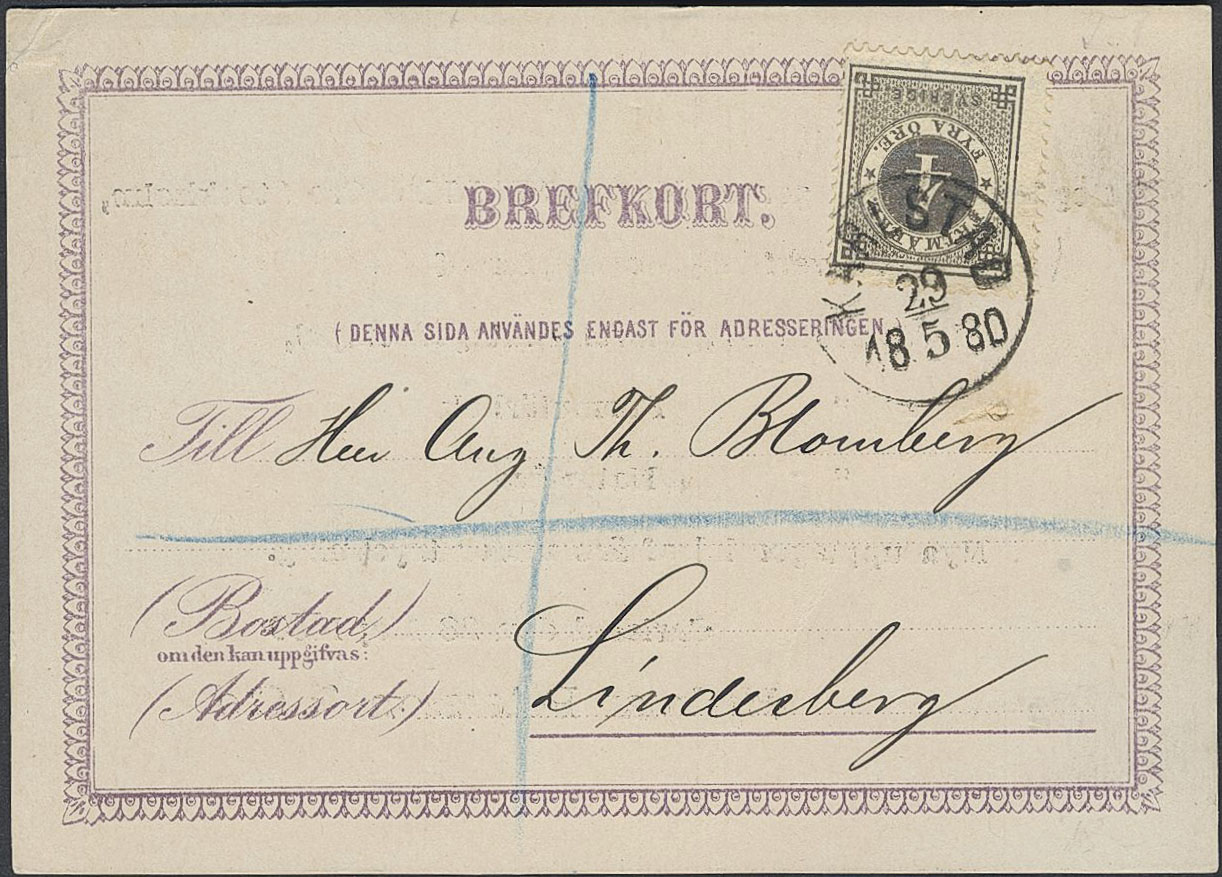 SVERIGE
FYRA ÖRE.
4
FRIMÄRKE
BREFKORT.
STAD
29
18 5 80
(DENNA SIDA ANVÄNDES ENDAST FÖR ADRESSERINGEN.)
Till Herr Aug Th. Blomberg
(Bostad,
om den kan uppgifvas:)
(Adressort:) Lindesberg